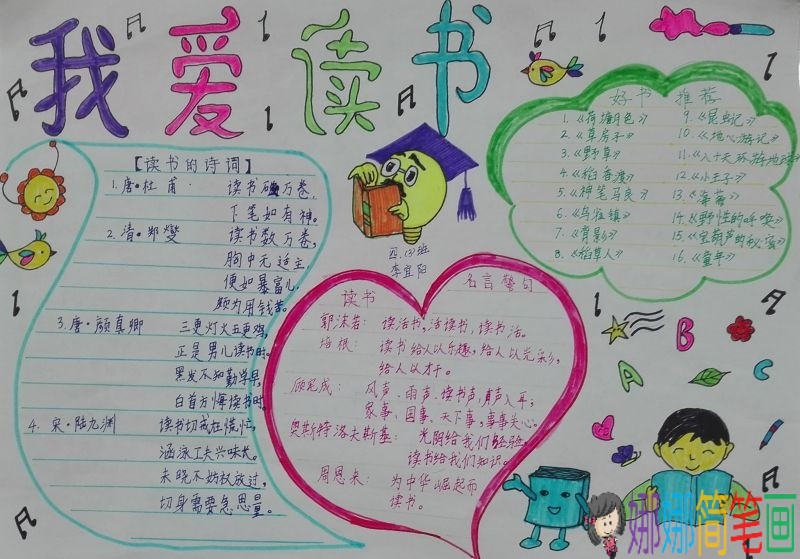 我爱读书
【读书的诗词】
1.唐·杜甫· 读书破万卷,
下笔如有神。
2.清·郑燮 读书数万卷,
胸中无适主,
便如暴富儿,
颇为用钱苦。
3.唐·颜真卿 三更灯火五更鸡,
正是男儿读书时。
黑发不知勤学早,
白首方悔读书时
4.宋·陆九渊 读书切戒在慌忙,
涵泳工夫兴味长。
未晓不妨权放过,
切身需要急思量。
四.(3)班
李宜阳
好书推荐
1.《荷塘月色》
2.《草房子》
3.《野草》
4.《稻香渡》
5.《神笔马良》
6.《乌镇》
7.《背影》
8.《稻草人》
9.《昆虫记》
10.《地心游记》
11.《八十天环游地球》
12.《小王子》
13.《海燕》
14.《野性的呼唤》
15.《宝葫芦的秘密》
16.《童年》
读书 名言警句
郭沫若: 读活书,活读书,读书活。
培根: 读书给人以乐趣,给人以光彩,
给人以才干。
顾宪成: 风声、雨声、读书声,声声入耳;
家事、国事、天下事,事事关心。
奥斯特洛夫斯基: 光阴给我们经验,
读书给我们知识。
周恩来: 为中华崛起而
读书。
A B C
娜娜简笔画